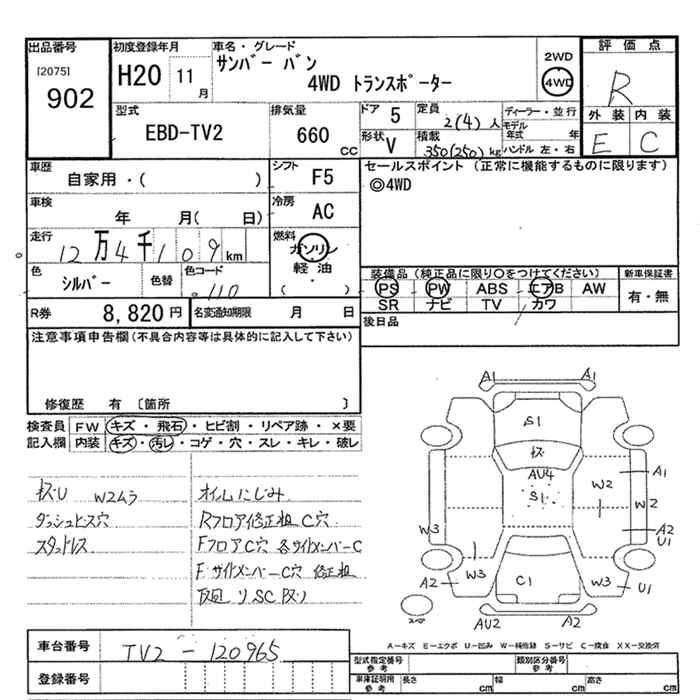 出品番号 初度登録年月 車名・グレード 評価点
[2075] 902 H20 11月 サンバー バン 2WD
4WD トランスポーター 4WD R
型式 排気量 ドア 5 定員 2(4)人 ディーラー・並行 外装 内装
EBD-TV2 660 CC 形状 V 積載 350(250)kg モデル年式 年 ハンドル 左・右 E C
車歴 シフト F5 セールスポイント (正常に機能するものに限ります)
自家用・( ) ◎4WD
車検 年 月( 日) 冷房 AC
走行 12万4千109km 燃料 ガソリン
軽油
( ・ )
色 シルバー 色替 色コード 110
装備品 (純正品に限り〇をつけてください) 新車保証書
PS PW ABS エアB AW 有・無
SR ナビ TV カワ
R券 8,820円 名変通知期限 月 日 後日品
注意事項申告欄(不具合内容等は具体的に記入して下さい)
修復歴 有 〔箇所 〕
検査員 FW キズ・飛石・ヒビ割・リペア跡・×要
記入欄 内装 キズ・汚レ・コゲ・穴・スレ・キレ・破レ
W2ムラ オイルにじみ
ダッシュビス穴 Rフロア修正粗 C穴
スタッドレス FフロアC穴 各サイドメンバーC
F・サイドメンバーC穴 修正粗
A1 A1
S1
キズ
AU4
S1
A1
W2
W2
A2
U1
W3
W3
A2
C1
W3
U1
スペア
AU2
A2
A－キズ E－エクボ U－凹み W－補修跡 S－サビ C－腐食 XX－交換済
車台番号 TV2 - 120965
登録番号
型式指定番号 参考 類別区分番号 参考
車庫証明用 参考 長さ cm 幅 cm 高さ cm